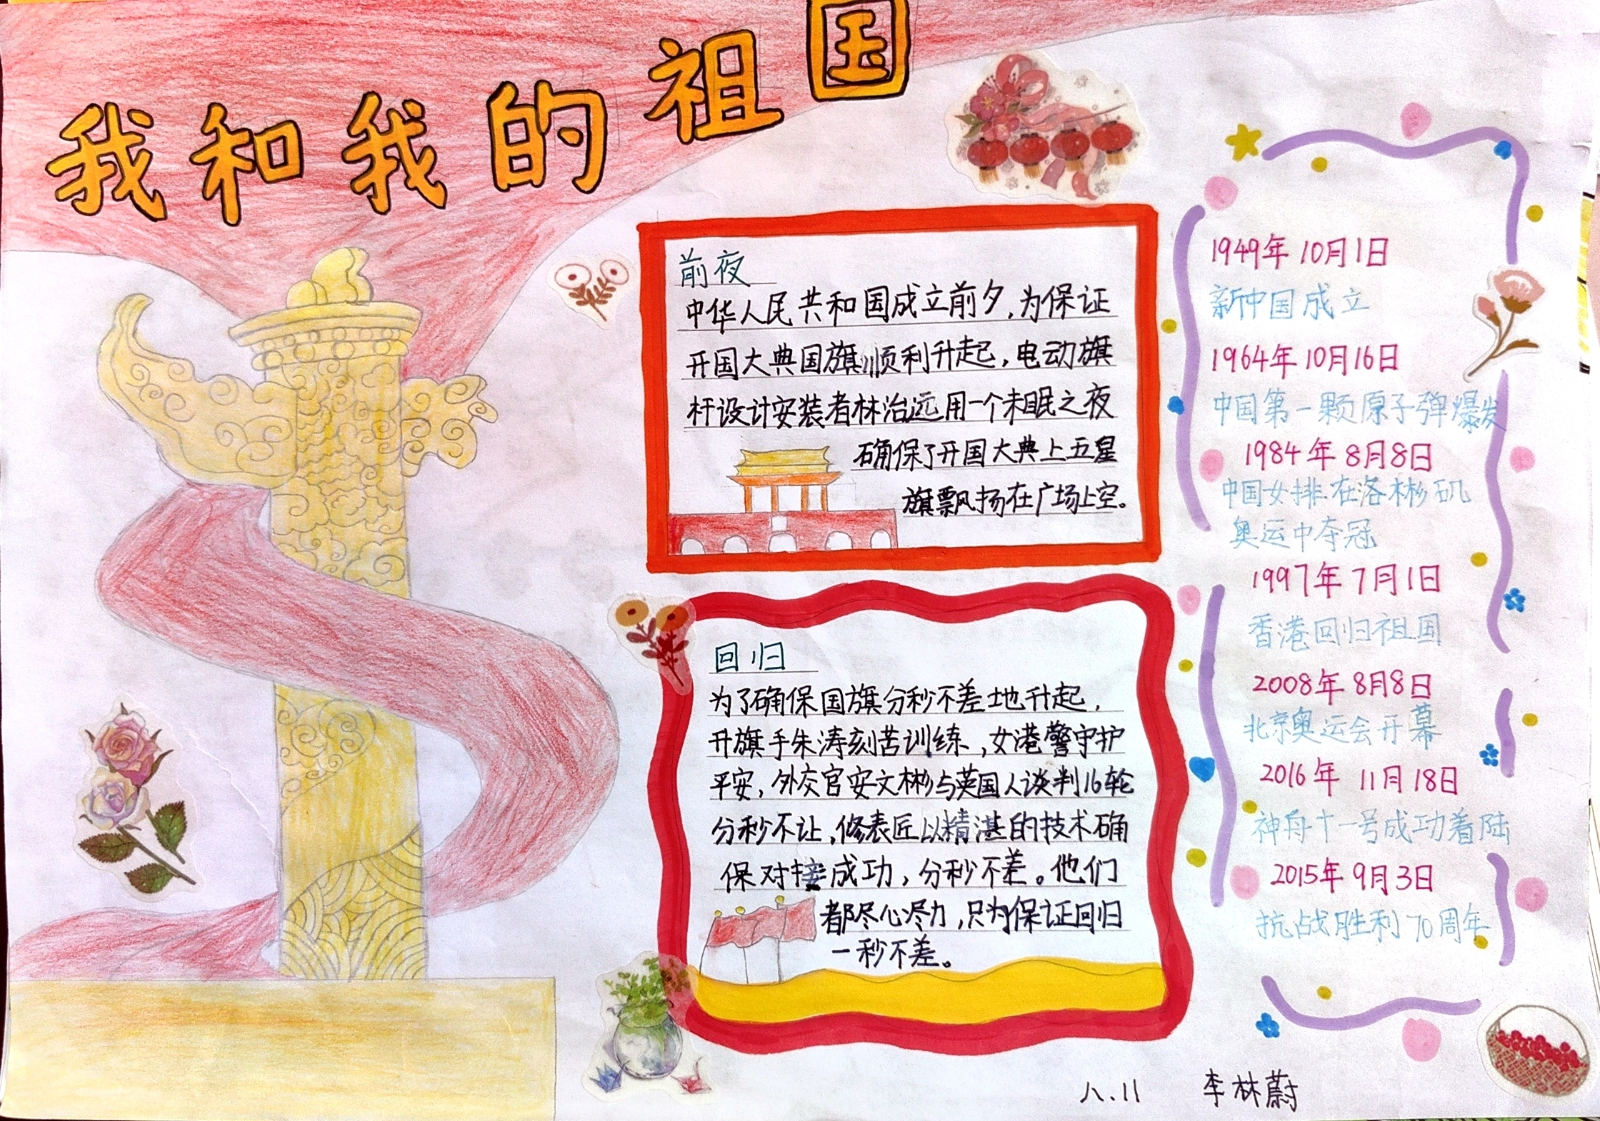 我和我的祖国
前夜
中华人民共和国成立前夕,为保证
开国大典国旗顺利升起,电动旗
杆设计安装者林治远用一个未眠之夜
确保了开国大典上五星
旗飘扬在广场上空。
回归
为了确保国旗分秒不差地升起,
升旗手朱涛刻苦训练,女港警守护
平安,外交官安文彬与英国人谈判16轮
分秒不让,修表匠以精湛的技术确
保对接成功,分秒不差。他们
都尽心尽力,只为保证回归
一秒不差。
1949年10月1日
新中国成立
1964年10月16日
中国第一颗原子弹爆发
1984年8月8日
中国女排在洛彬矶
奥运中夺冠
1997年7月1日
香港回归祖国
2008年8月8日
北京奥运会开幕
2016年 11月18日
神舟十一号成功着陆
2015年9月3日
抗战胜利70周年
八.11 李林蔚